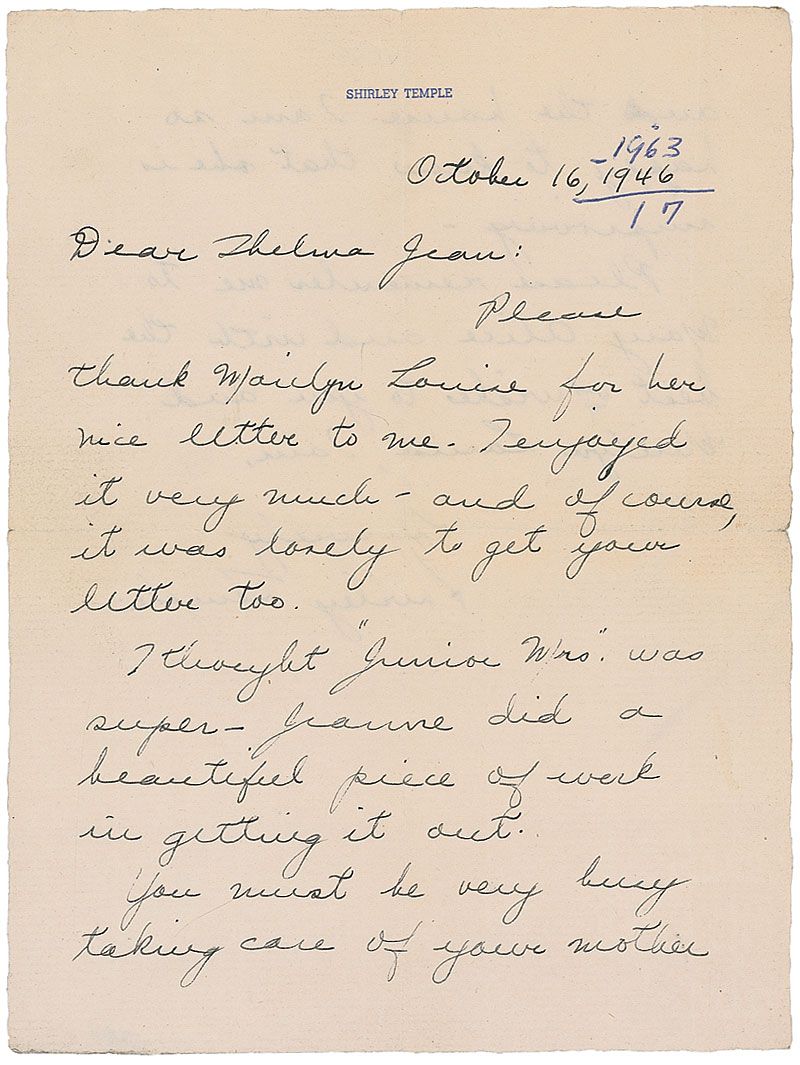 SHIRLEY TEMPLE
-1963
October 16, 1946
17
Dear Thelma Jean:
Please
thank Marilyn Louise for her
nice letter to me. I enjoyed
it very much - and of course,
it was lovely to get your
letter too.
I thought "Junior Mrs". was
super - Jeanne did a
beautiful piece of work
in getting it out.
You must be very busy
taking care of your mother